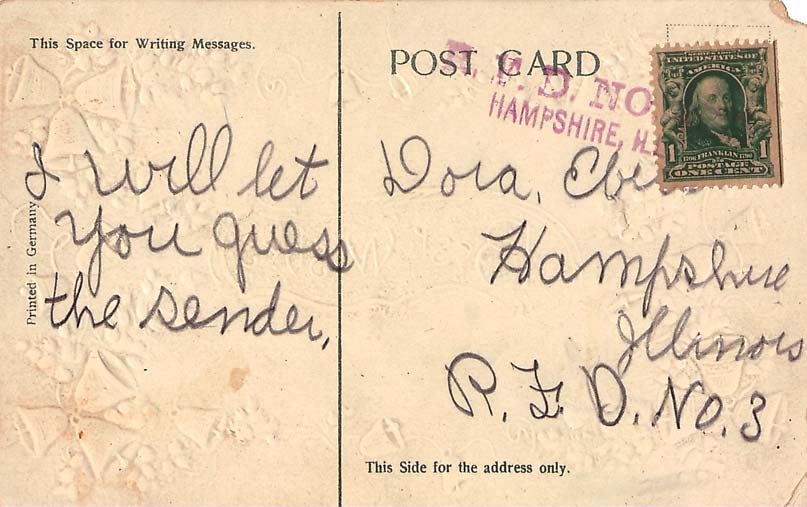 This Space for Writing Messages.
POST CARD
R. F. D. NO
HAMPSHIRE, IL
UNITED STATES OF
AMERICA
1 1
1706 FRANKLIN 1790
POSTAGE
ONE CENT
Printed in Germany
I will let
You guess
the sender.
Dora,
Hampshire
Illinois
R. F. D. No. 3
This Side for the address only.